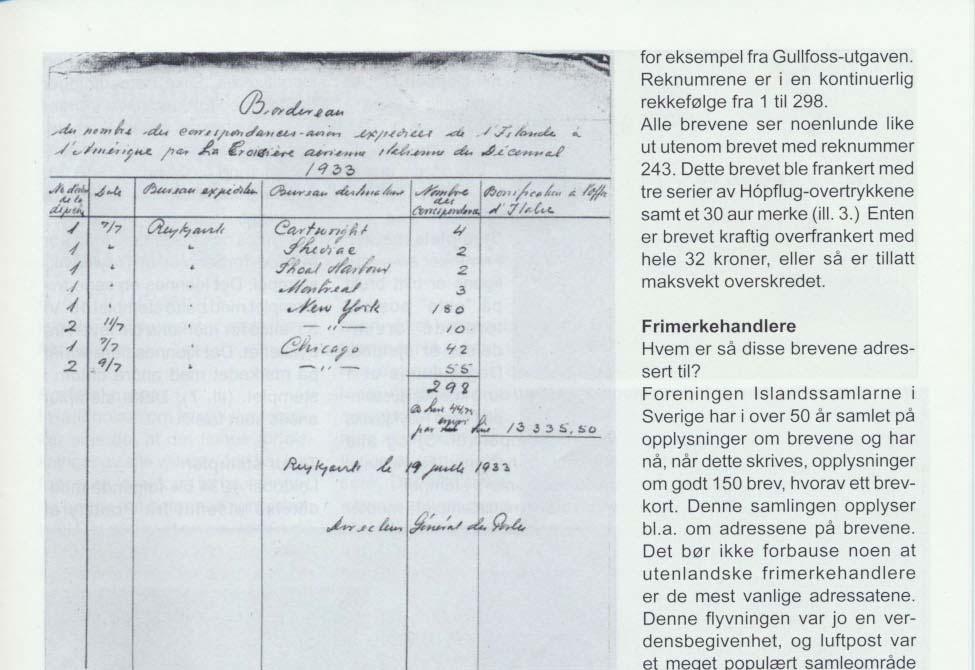 Bordereau
du nombre des correspondances-avion expédiées de l'Islande à
l'Amérique par La Croisière aérienne italienne du Décennal
1933
de la Date Bureau expéditeur Bureau destinataire Nombre des Bonification à l'Office d'Italie
1 7/7 Reykjavik Cartwright 4
1 " " Shediac 2
1 " " Shoal Harbour 2
1 " " Montreal 3
1 " " New York 180
2 11/7 " — " — 10
1 7/7 " Chicago 42
2 9/7 " — " — 55
298
13 335,50
Reykjavik le 19 juillet 1933
Directeur Général des Postes
for eksempel fra Gullfoss-utgaven.
Reknumrene er i en kontinuerlig
rekkefølge fra 1 til 298.
Alle brevene ser noenlunde like
ut utenom brevet med reknummer
243. Dette brevet ble frankert med
tre serier av Hópflug-overtrykkene
samt et 30 aur merke (ill. 3.) Enten
er brevet kraftig overfrankert med
hele 32 kroner, eller så er tillatt
maksvekt overskredet.
Frimerkehandlere
Hvem er så disse brevene adres-
sert til?
Foreningen Islandssamlarne i
Sverige har i over 50 år samlet på
opplysninger om brevene og har
nå, når dette skrives, opplysninger
om godt 150 brev, hvorav ett brev-
kort. Denne samlingen opplyser
bl.a. om adressene på brevene.
Det bør ikke forbause noen at
utenlandske frimerkehandlere
er de mest vanlige adressatene.
Denne flyvningen var jo en ver-
densbegivenhet, og luftpost var
et meget populært samleområde